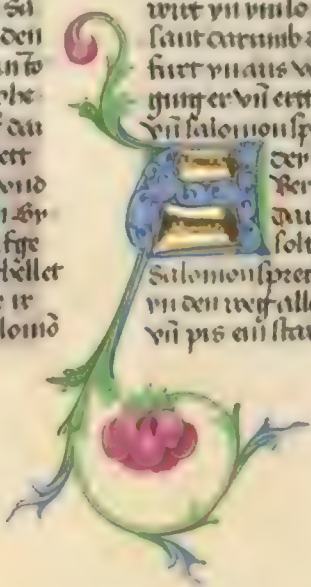 Sa
den
dar
ett
vnd
By
fge
hellet
ir
lomō
wirt vn̄ vmlo
sant darumb a
furt vn̄ aus
ging er vn̄ ertt
vn̄ salomon sp
der
Ber
dau
solt
Salomon spre
vn̄ den weg alle
vn̄ pis ein star